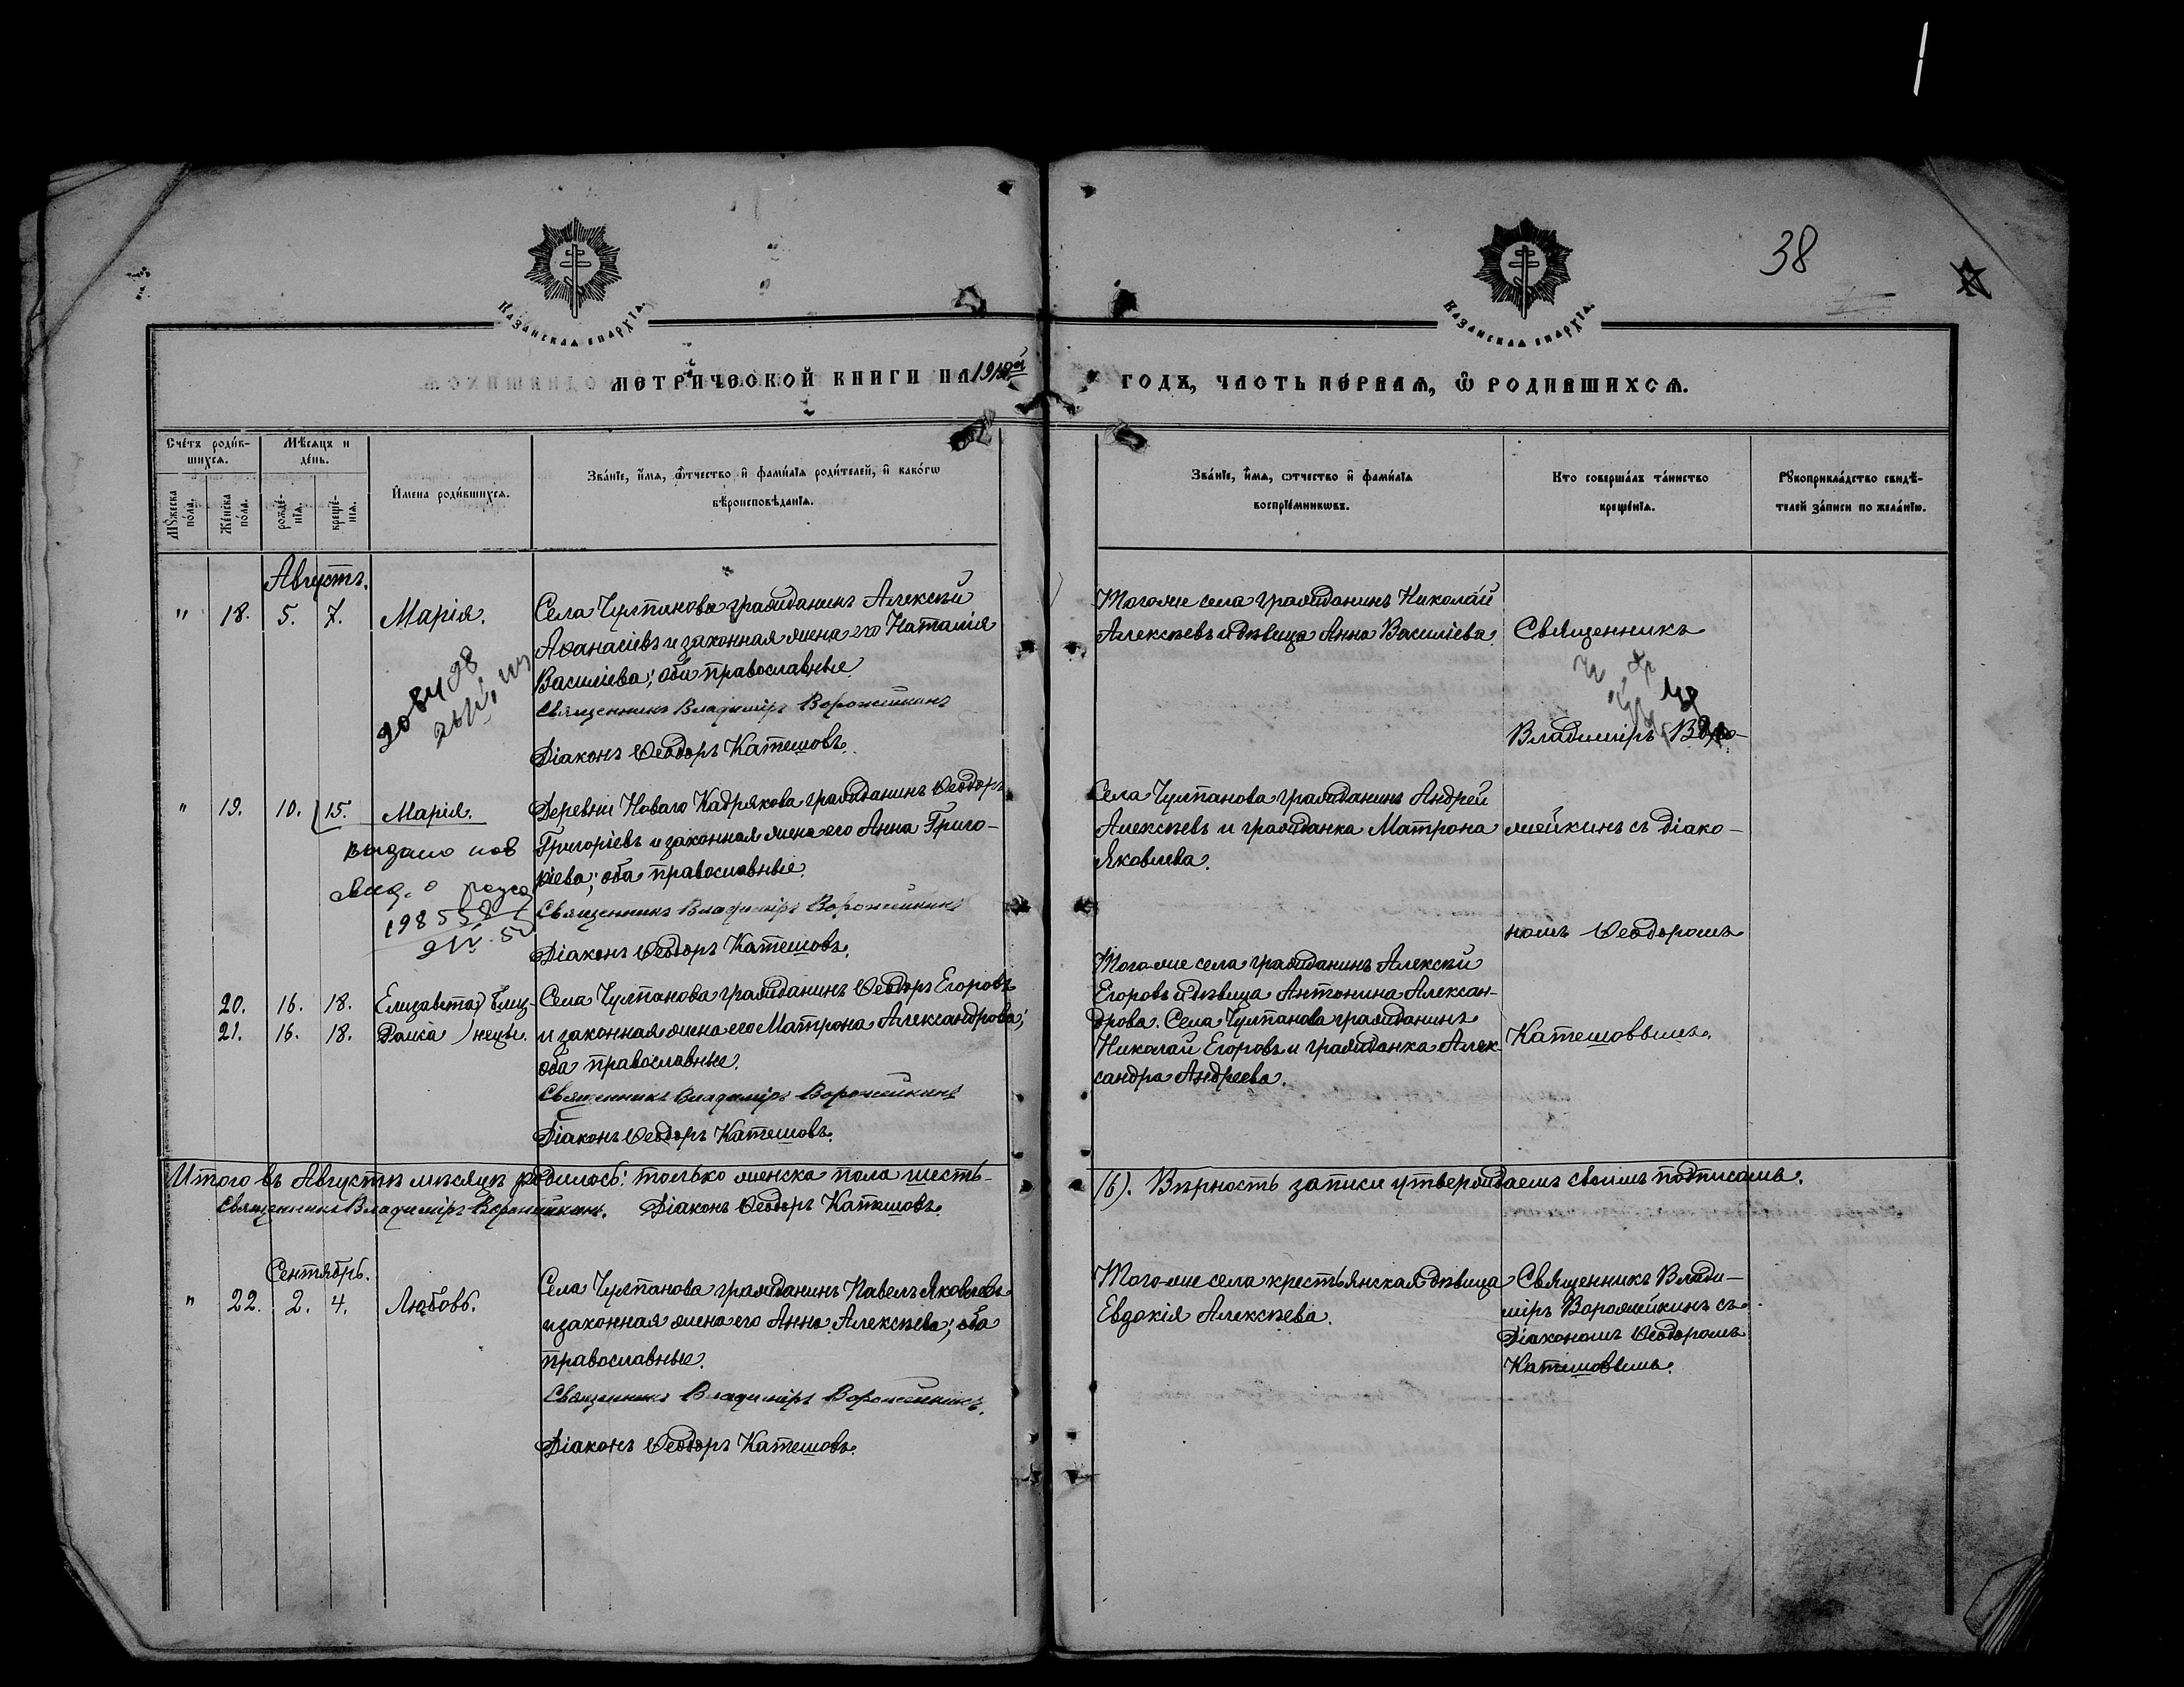 38
Казанская епархїа.
Казанская епархїа.
метрической книги на 1918ой
годъ, часть первая, ѡ родившихся.
Счетъ родив-
шихся.
Мѣсяцъ и
день.
Мужеска
пола.
Женска
пола.
рожде-
нїя.
креще-
нїя.
Имена родившихся.
Званїе, имя, ѡтчество и фамилїя родителей, и какогѡ
вѣроисповѣданїя.
Званїе, имя, ѡтчество и фамилїя
воспрїемникѡвъ.
Кто совершалъ таинство
крещенїя.
Рукоприкладство свидѣ-
телей записи по желанїю.
Августъ.
" 18. 5. 7. Марія.
Села Чулпанова гражданинъ Алексѣй
Аѳанасіевъ и законная жена его Наталія
Василіева; оба православные.
Священникъ Владиміръ Ворожейкинъ
Діаконъ Ѳеодоръ Катешовъ.
Того-же села гражданинъ Николай
Алексѣевъ и дѣвица Анна Василіева.
Священникъ
Владиміръ Воро-
" 19. 10. 15. Марія.
выдано пов
Деревни Новаго Кадрякова гражданинъ Ѳеодоръ
Григоріевъ и законная жена его Анна Григо-
ріева; оба православные.
Священникъ Владиміръ Ворожейкинъ
Діаконъ Ѳеодоръ Катешовъ.
Села Чулпанова гражданинъ Андрей
Алексѣевъ и гражданка Матрона
Яковлева.
жейкинъ съ діако-
номъ Ѳеодоромъ
20. 16. 18. Елизавета) близ-
21. 16. 18. Раиса ) нецы.
Села Чулпанова гражданинъ Ѳеодоръ Егоровъ
и законная жена его Матрона Александрова;
оба православные.
Священникъ Владиміръ Ворожейкинъ
Діаконъ Ѳеодоръ Катешовъ.
Того-же села гражданинъ Алексѣй
Егоровъ и дѣвица Антонина Алексан-
дрова. Села Чулпанова гражданинъ
Николай Егоровъ и гражданка Алек-
сандра Андреева.
Катешовымъ.
Итого въ Августѣ мѣсяцѣ родилось: только женска пола шесть-
(6). Вѣрность записи утверждаемъ своимъ подписомъ.
Священникъ Владиміръ Ворожейкинъ. Діаконъ Ѳеодоръ Катешовъ.
Сентябрь.
" 22. 2. 4. Любовь.
Села Чулпанова гражданинъ Павелъ Яковлевъ
и законная жена его Анна Алексѣева; оба
православные.
Священникъ Владиміръ Ворожейкинъ.
Діаконъ Ѳеодоръ Катешовъ.
Того-же села крестьянская дѣвица
Евдокія Алексѣева.
Священникъ Влади-
міръ Ворожейкинъ съ
Діакономъ Ѳеодоромъ
Катешовымъ.